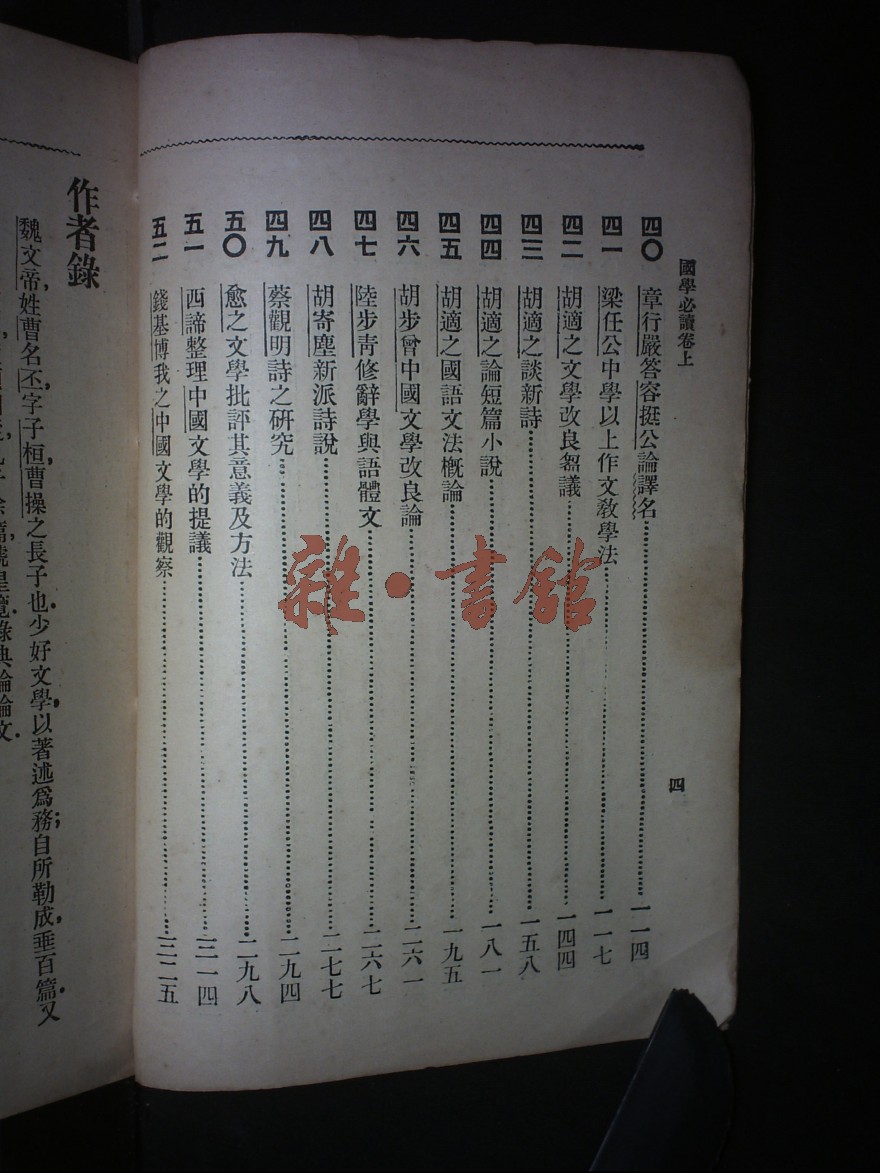 國學必讀卷上
四
四〇 章行嚴答容挺公論譯名……一一四
四一 梁任公中學以上作文教學法……一一七
四二 胡適之文學改良芻議……一四四
四三 胡適之談新詩……一五八
四四 胡適之論短篇小說……一八一
四五 胡適之國語文法概論……一九五
四六 胡步曾中國文學改良論……二六一
四七 陸步青修辭學與語體文……二六七
四八 胡寄塵新派詩說……二七七
四九 蔡觀明詩之研究……二九四
五〇 愈之文學批評其意義及方法……二九八
五一 西諦整理中國文學的提議……三一四
五二 錢基博我之中國文學的觀察……三二五
作者錄
魏文帝，姓曹名丕，字子桓，曹操之長子也．少好文學，以著述爲務；自所勒成，垂百篇．又
雜·書館